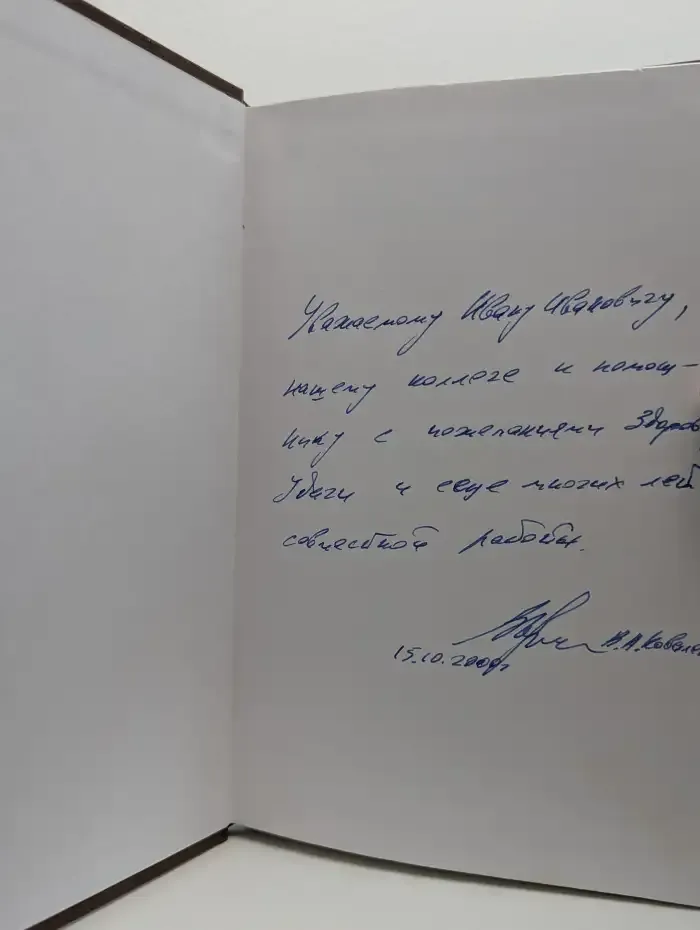 Уважаемому Ивану Ивановичу,
нашему коллеге и помощ-
нику с пожеланиями Здоров
Удачи и еще многих лет
совместной работы.
В.А. Ковале
15.10.2000г